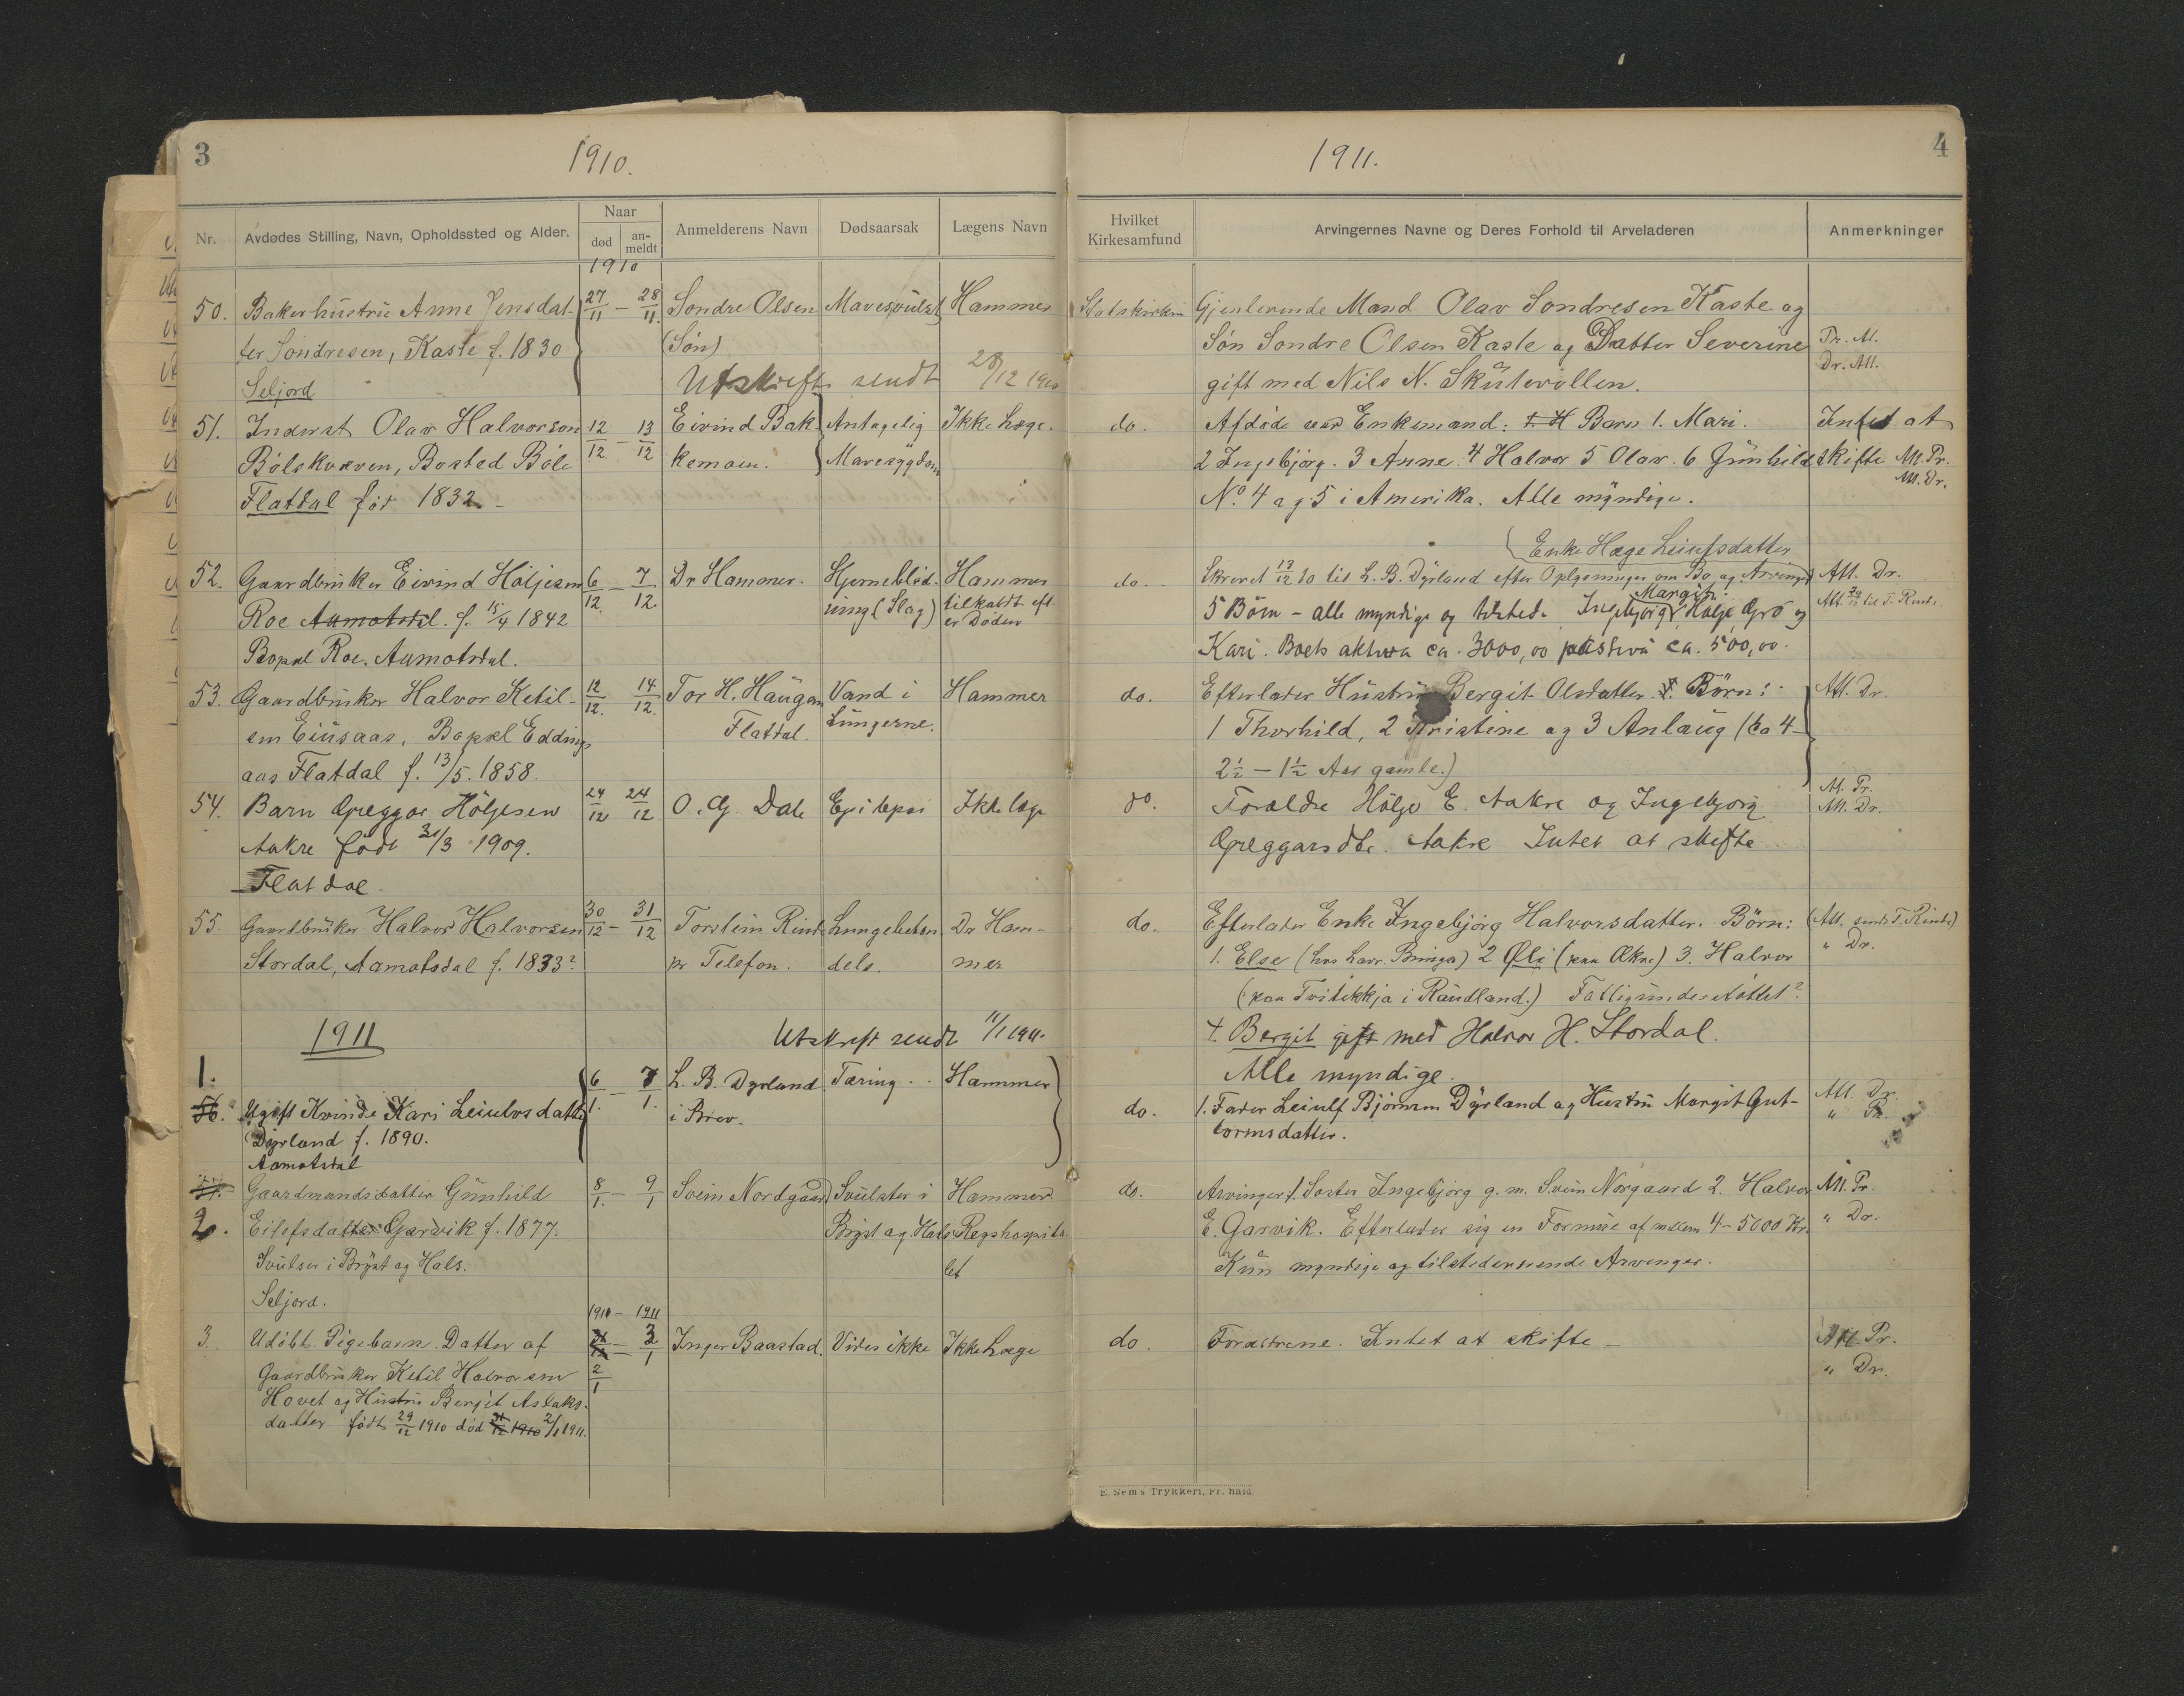 3
1910.
Nr.
Avdødes Stilling, Navn, Opholdssted og Alder.
Naar
død
an-
meldt
Anmelderens Navn
Dødsaarsak
Lægens Navn
1910
50. Bakerhustru Anne Jensdat- 27/11 – 28/11. Sondre Olsen Mavesvulst Hammer
ter Sondresen, Kaste f. 1830 (Søn)
Seljord Utskrift sendt 28/12 1910
51. Inderst Olav Halvorson 12/12 – 13/12 Eivind Bak- Antagelig Ikke Læge.
Bölskvæven, Bosted Böle kemoen. Mavesygdom
Flatdal før 1832. –
52. Gaardbruker Eivind Höljesen 6/12. – 7/12 Dr Hammer. Hjerneblød- Hammer
Roe Aamotsdal. f. 15/4 1842 ning (Slag) tilkaldt eft-
er Døden
Bopæl Roe. Aamotsdal.
53. Gaardbruker Halvor Ketil- 12/12. 14/12. Tor H. Haugen Vand i Hammer
sen Einsaas, Bopæl Eddings Flatdal. Lungerne.
aas Flatdal f. 13/5. 1858.
54. Barn Greggar Höljesen 24/12 24/12 O. G. Dale Epilepsi Ikke læge
Aakre født 31/3 1909.
Flatdal
55. Gaardbruker Halvor Halvorsen 30/12 – 31/12 Torstein Rinde Lungebeten- Dr Ham-
Stordal, Aamotsdal f. 1833? pr Telefon. delse. mer
1911 Utskrift sendt 11/1 1911.
1.
56. Ugift Kvinde Kari Leiulvsdatter 6/1. – 7/1. L. B. Dyrland Tæring. Hammer
Dyrland f. 1890. i Brev.
Aamotsdal
57. Gaardmandsdatter Gunhild 8/1. – 9/1 Svein Nordgaard Svulster i Hammer
2. Eilefsdatter Garvik f. 1877. Bryst og Hals Regshospita
Svulser i Bryst og Hals. let
Seljord.
1910 – 1911
3. Udöbt Pigebarn Datter af 31/12 – 3/1 Inger Baastad. Vides ikke Ikke Læge
Gaardbruker Ketil Halvorsen 2/1
Hovet og Hustru Bergit Aslaks-
datter født 29/12 1910 død 31/12 1910 2/1 1911.
4
1911.
Hvilket
Kirkesamfund
Arvingernes Navne og Deres Forhold til Arveladeren
Anmerkninger
Statskirken Gjenlevende Mand Olav Sondresen Kaste og
Søn Sondre Olsen Kaste og Datter Severine
gift med Nils N. Skutevollen.
do. Afdöde var Enkemand: Barn 1. Mari. Intet at
2 Ingebjörg. 3 Anne. 4 Halvor 5 Olav. 6 Gunhild skifte Att. Pr.
Att. Dr.
No. 4 og 5 i Amerika. Alle myndige.
Enke Hæge Leiulfsdatter
do. Skrevet 13/12 10 til L. B. Dyrland efter Oplysninger om Bo og Arvinger Att. Dr.
Margit
5 Börn – alle myndige og tilstede Ingebjörg, Hølje, Gro og
Kari. Boets aktiva ca. 3000,00 passiva ca. 500,00.
do. Efterlater Hustru Bergit Olsdatter. Börn: Att. Dr.
1 Thorhild, 2 Kristine og 3 Anlaug (ca 4 –
2½ – 1½ Aar gamle.)
do. Forældre Hölje E. Aakre og Ingebjorg At. Pr.
Att. Dr.
Greggarsdtr. Aakre Intet at skifte
do. Efterlater Enke Ingebjörg Halvorsdatter. Börn: (Att. sendt T. Rinde)
1. Else (hos Lavr. Bringa) 2 Øli (paa Økne) 3. Halvor " Dr.
(paa Tvitekkja i Raudland.) Fattigunderstöttet?
4. Bergit gift med Halvor H. Stordal.
Alle myndige.
do. 1. Fader Leiulf Björnsen Dyrland og Hustru Margit Gut- Att. Dr.
" Pr.
tormsdatter.
do. Arvinger 1. Søster Ingebjörg g. m. Svein Norgaard 2. Halvor Att. Pr.
E. Garvik. Efterlader sig en Formue af mellem 4 – 5000 Kr. " Dr.
Kun myndige og tilstedeværende Arvinger.
do. Forældrene. Intet at skifte – Att Pr.
" Dr.
E. Sem's Trykkeri, Fr. hald